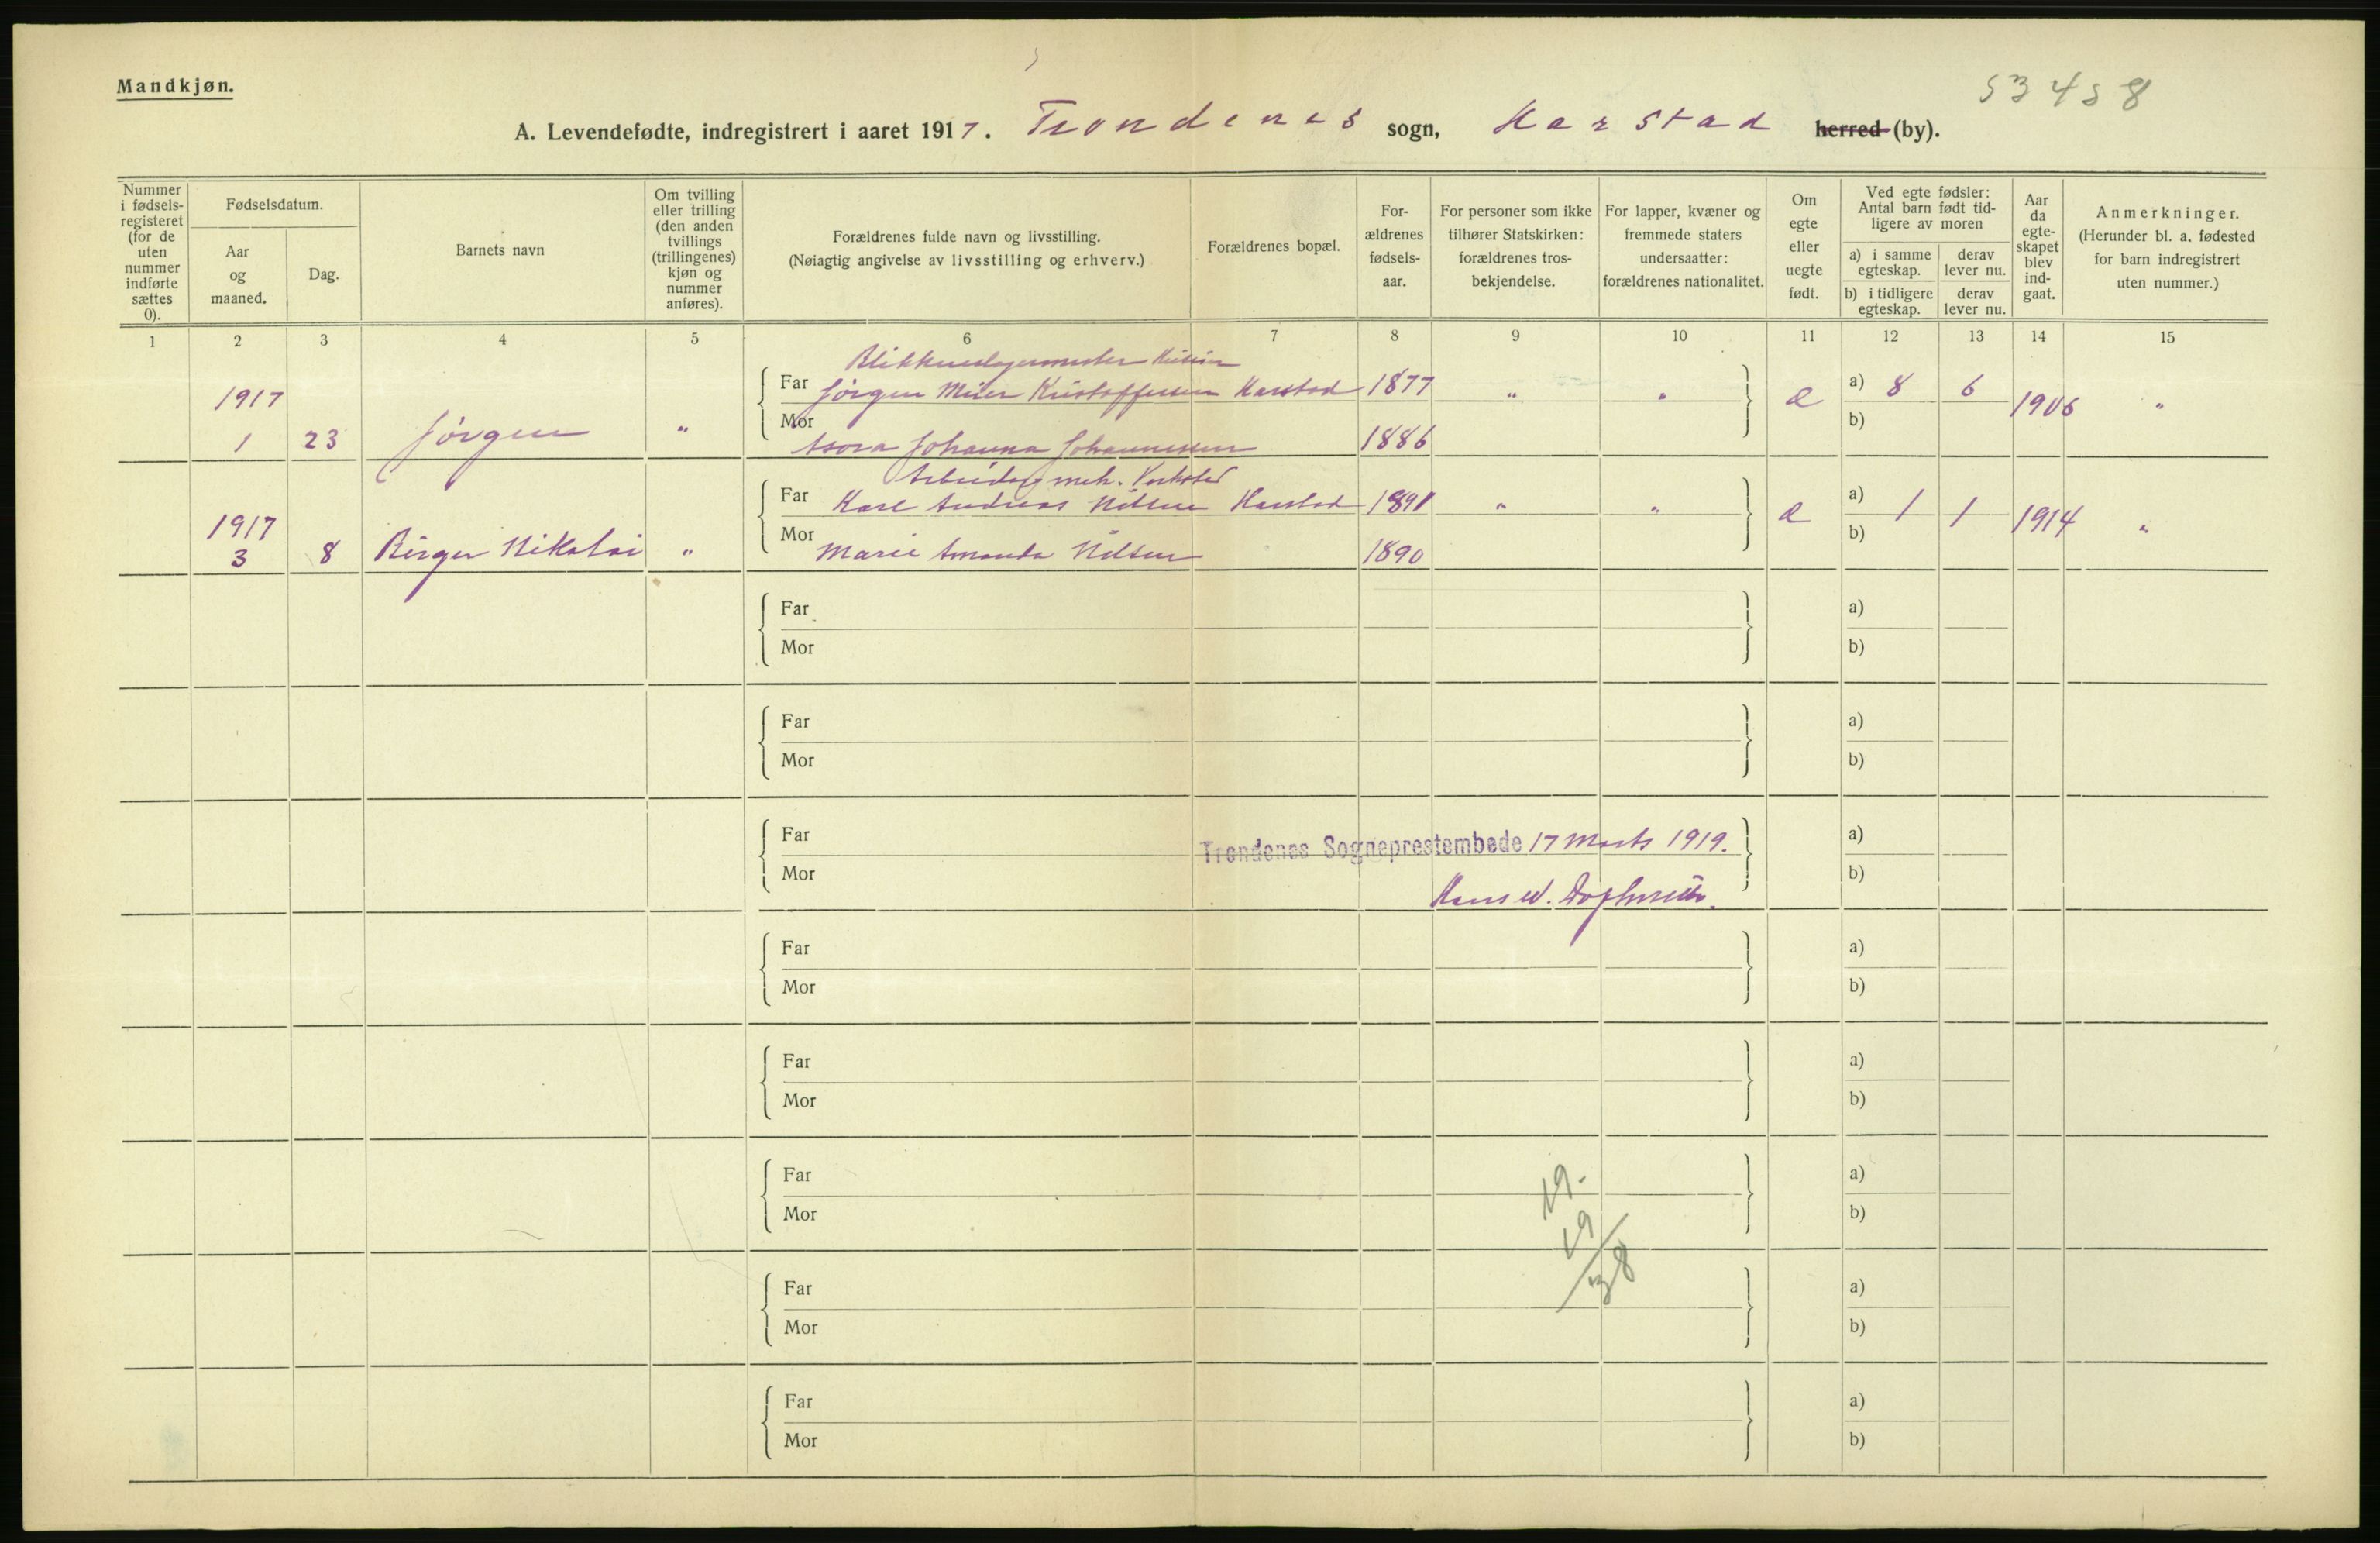 Mandkjøn.
53458
A. Levendefødte, indregistrert i aaret 1917. Trondenes sogn, Harstad herred (by).
Nummer i fødsels-registeret (for de uten nummer indførte sættes 0).
Fødselsdatum.
Aar og maaned.
Dag.
Barnets navn
Om tvilling eller trilling (den anden tvillings (trillingenes) kjøn og nummer anføres).
Forældrenes fulde navn og livsstilling.
(Nøiagtig angivelse av livsstilling og erhverv.)
Forældrenes bopæl.
For-ældrenes fødsels-aar.
For personer som ikke tilhører Statskirken: forældrenes tros-bekjendelse.
For lapper, kvæner og fremmede staters undersaatter: forældrenes nationalitet.
Om egte eller uegte født.
Ved egte fødsler: Antal barn født tid-ligere av moren
a) i samme egteskap.
derav lever nu.
b) i tidligere egteskap.
derav lever nu.
Aar da egte-skapet blev ind-gaat.
Anmerkninger.
(Herunder bl. a. fødested for barn indregistrert uten nummer.)
1 2 3 4 5 6 7 8 9 10 11 12 13 14 15
Blikkenslagermester
1917 Far Jörgen Meier Kristoffersen Harstad 1877 " " e a) 8 6 1906 "
1 23 Jörgen " Mor Johanna Johannessen 1886 b)
Arbeider mek. Verksted
1917 Far Karl Andreas Nilsen Harstad 1891 " " e a) 1 1 1914 "
3 8 Birger Nikolai " Mor Marie Amanda Nilsen 1890 b)
Far a)
Mor b)
Far a)
Mor b)
Far Trondenes Sogneprestembede 17 Marts 1919. a)
Mor b)
Hans
Far a)
Mor b)
Far a)
Mor b)
Far 19. a)
Mor 19 b)
Far 38 a)
Mor b)
Far a)
Mor b)